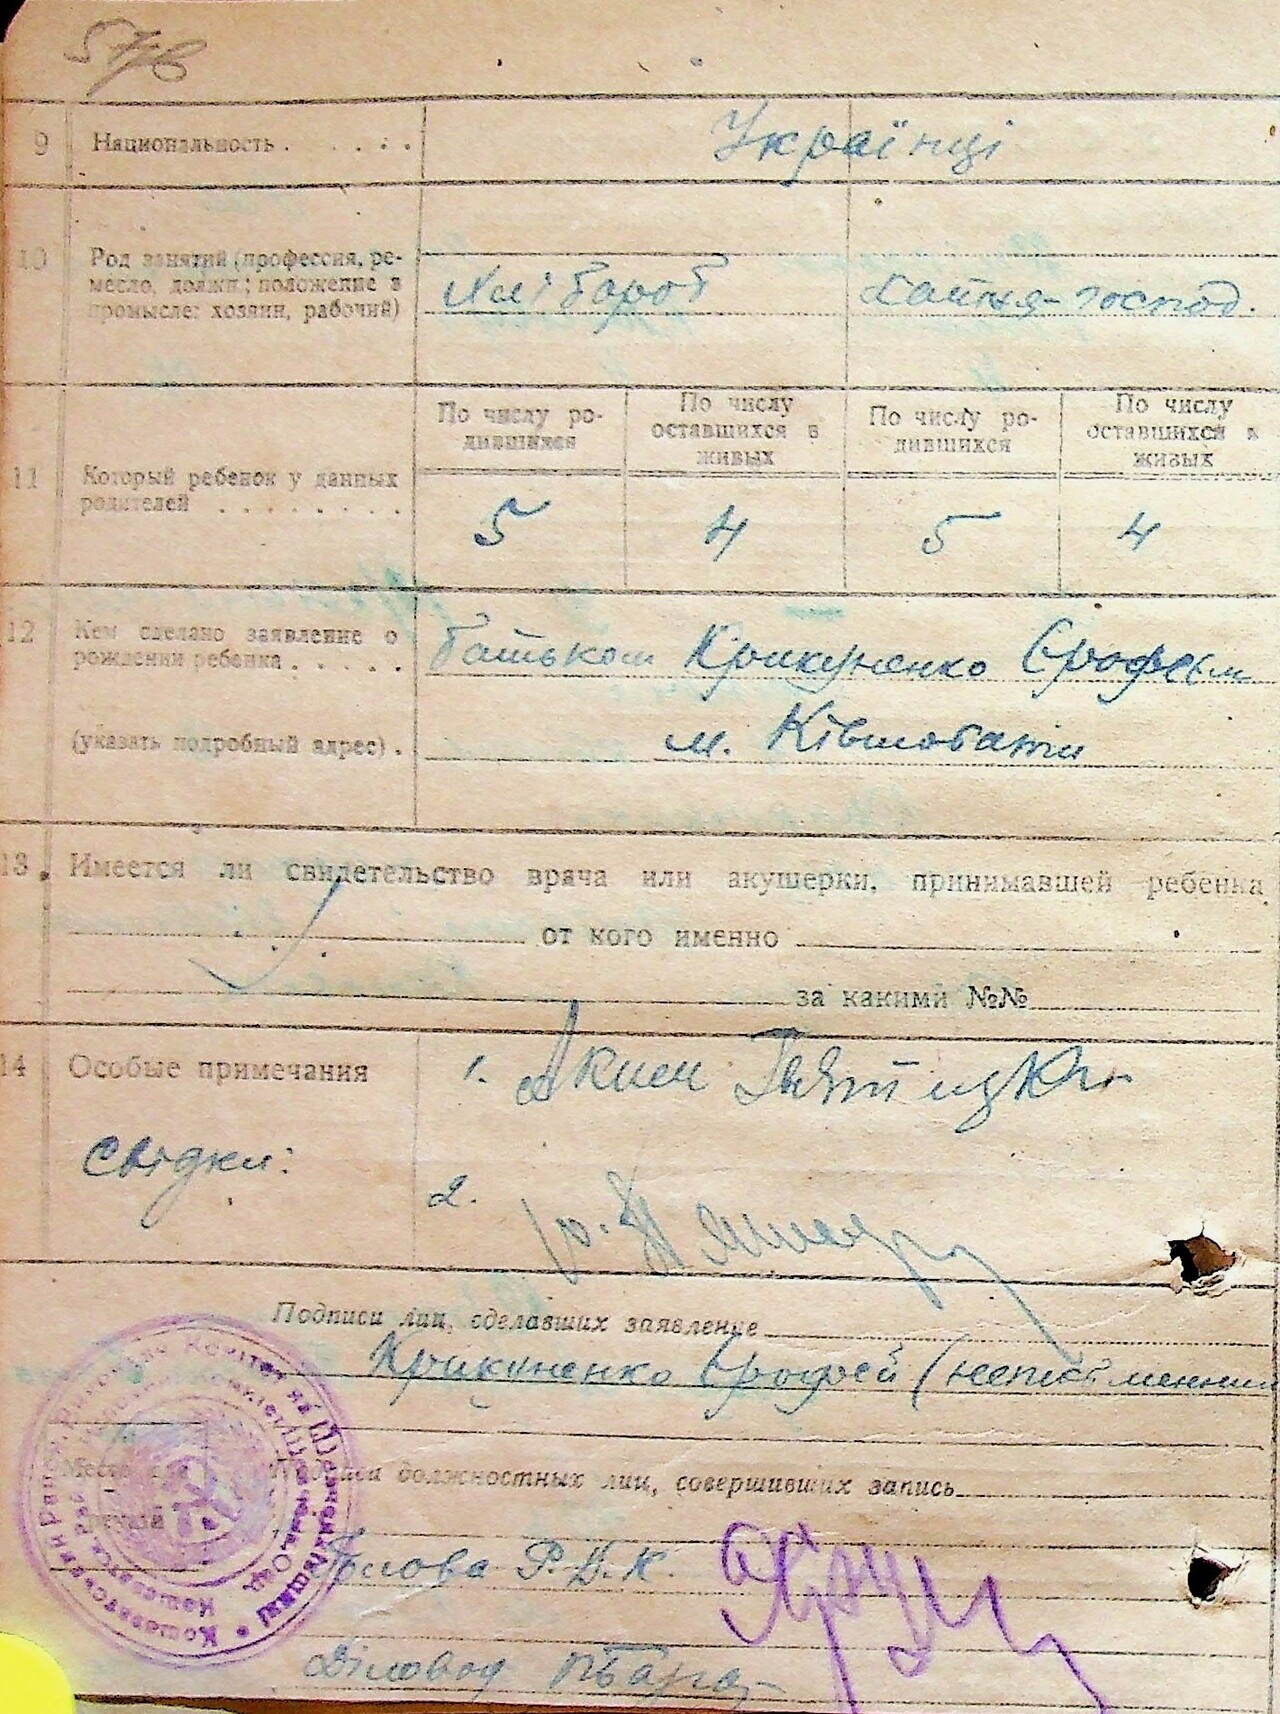 57/в
9 Национальность . . . . . Українці
10 Род занятий (профессия, ре-
месло, должн; положение в
промысле: хозяин, рабочий)
Хлібороб Хатня-господ.
11 Который ребенок у данных
родителей . . . . . . . .
По числу ро-
дившихся
По числу
оставшихся в
живых
По числу ро-
дившихся
По числу
оставшихся в
живых
5 4 5 4
12 Кем сделано заявление о
рождении ребенка . . . . .
батьком Крикуненко Єрофеєм
(указать подробный адрес) . м. Ківшовати
13 Имеется ли свидетельство врача или акушерки, принимавшей ребенка
от кого именно
за какими №№
14 Особые примечания
1. Яким
Свідки:
2.
Подписи лиц, сделавших заявление
Крикуненко Єрофей (неписьменний
Место для
печати
Подписи должностных лиц, совершивших запись
Голова Р.В.К.
Діловод